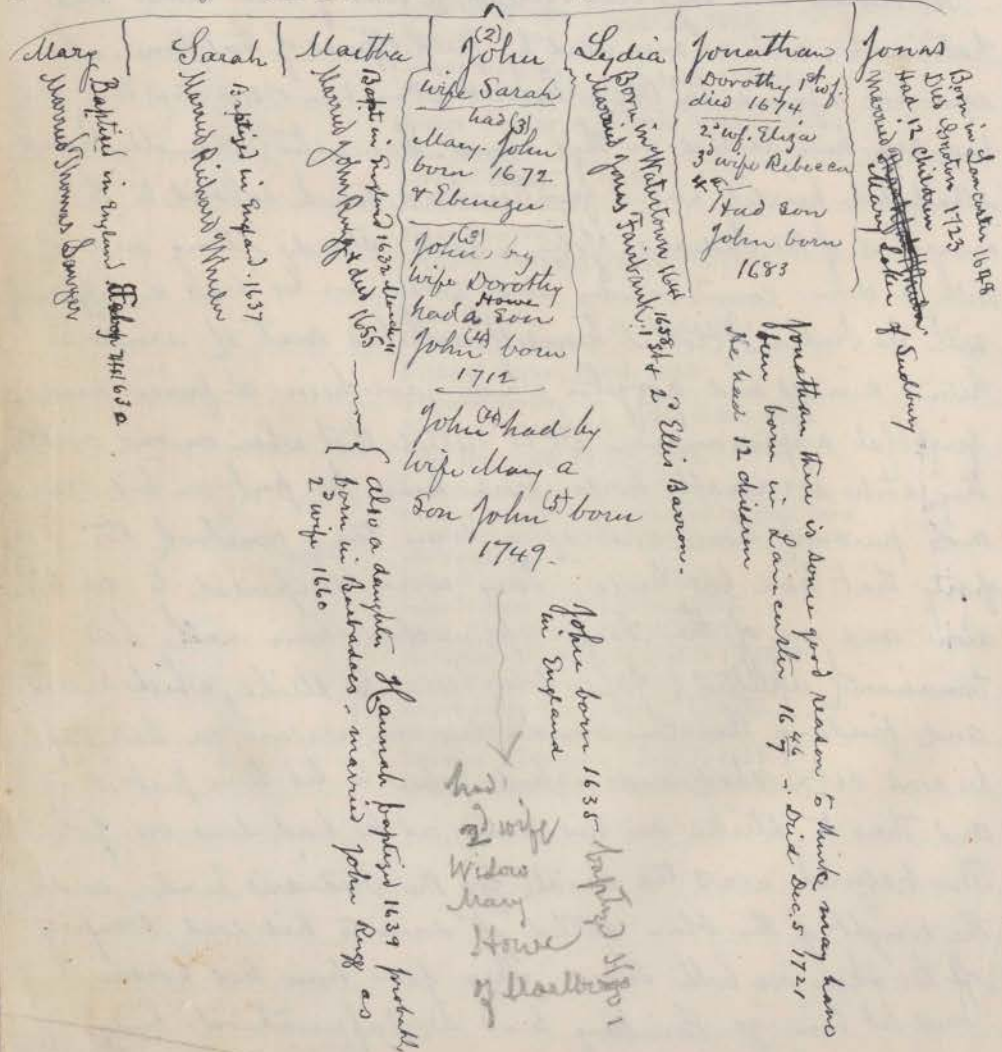 Mary
Baptised in England 1630
Married Thomas Sawyer
Sarah
Baptized in England. 1637
Married Richard Wheeler
Martha
Bapt in England 1632
Married John Rugg & died 1655
also a daughter Hannah baptized 1639 probably
born in Barbadoes, married John Rugg as
2d wife 1660
(2)
John
wife Sarah
had (3)
Mary. John
born 1672
& Ebenezer
John (3) by
wife Dorothy
Howe
had a son
John (4) born
1712
John (4) had by
wife Mary a
Son John (5) born
1749.
had
2d wife
Widow
Mary
Howe
of Marlboro
John born 1635 baptized
in England
Lydia
Born in Watertown 1641
Married Jonas Fairbank, 1658 1st & 2d Ellis Barron.
Jonathan
Dorothy 1st wf.
died 1674
2d wf. Eliza
3d wife Rebecca
&
Had son
John born
1683
Jonathan there is some good reason to think may have
been born in Lancaster 1646/7. Died Dec. 5 1721
He had 12 children
Jonas
Born in Lancaster 1648
Died Groton 1723
Had 12 children
Married Mary Loker of Sudbury